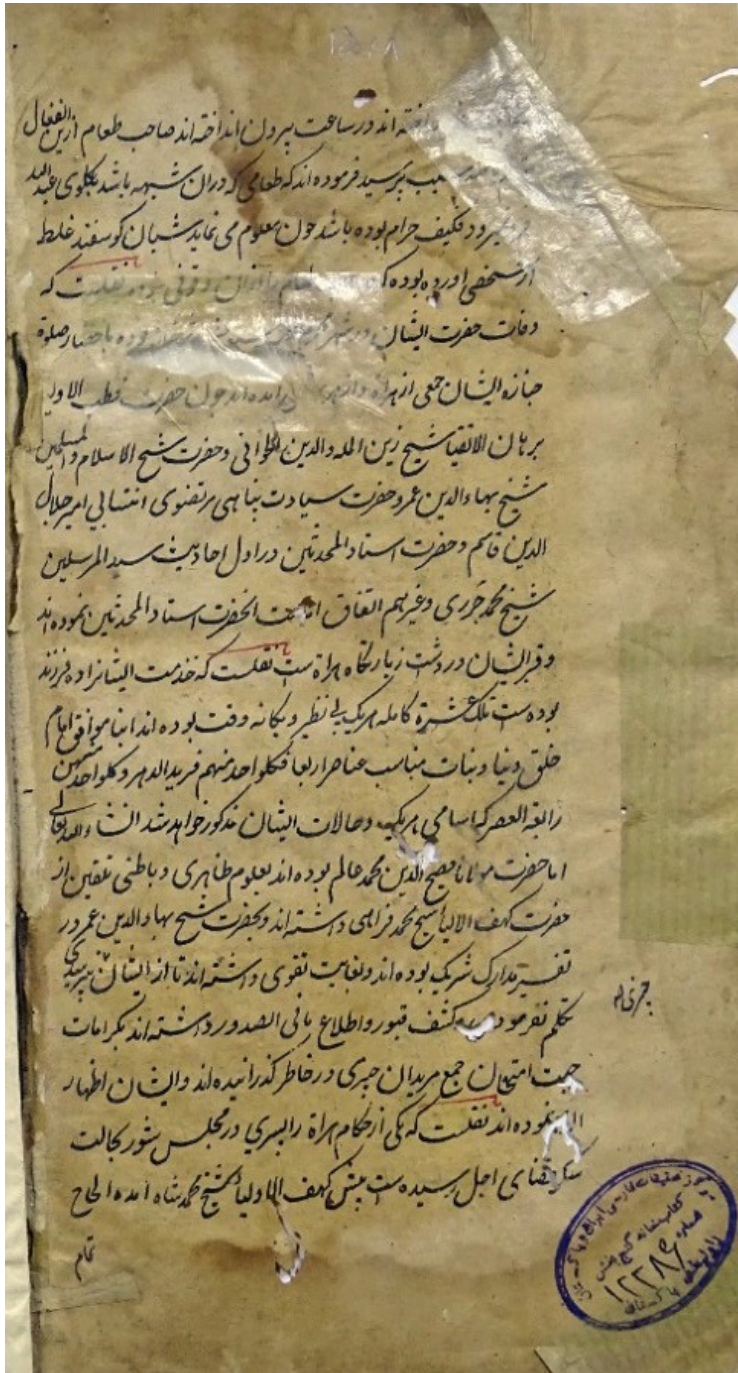 اند در ساعت بیرون انداخته اند صاحب طعام ازین انفعال
پرسید فرموده اند که طعامی که دران شبهه باشد بگلوی عبدالله
فکیف حرام بوده باشد چون معلوم می نماید شبان کوسفند غلط
از شخصی اورده بوده نقلست که
وفات حضرت ایشان در شهر باحضار صلوة
جنازه ایشان جمعی از هراة امده اند چون حضرت قطب الاولیا
برهان الاتقیا شیخ زین المله والدین الخوافی و حضرت شیخ الاسلام والمسلمین
شیخ بهاءالدین عمر و حضرت سیادت پناهی مرتضوی انتسابی امیر جلال
الدین قاسم و حضرت استاد المحدثین در اول احادیث سید المرسلین
شیخ محمد جزری وغیرهم اتفاق امامت الحضرت استاد المحدثین نموده اند
و قبر ایشان در دشت زیارتگاه هراة ست نقلست که خدمت ایشانرا ده فرزند
بوده ست تلک عشرة کامله هر یک بی نظیر و یگانه وقت بوده اند ابنا موافق ایام
خلق دنیا و بنات مناسب عناصر اربعا فکلواحد منهم فرید الدهر و کلواحد منهن
رابعة العصر که اسامی هر یک و حالات ایشان مذکور خواهد شد انشاءالله تعالی
اما حضرت مولانا فصیح الدین محمد عالم بوده اند بعلوم ظاهری و باطنی تلقین از
حضرت کهف الاولیا شیخ محمد فراهی داشته اند و بحضرت شیخ بهاءالدین عمر در
تفسیر مدارک شریک بوده اند و بغایت تقوی داشته اند تا از ایشان نپرسیدی
تکلم نفرموده کشف قبور و اطلاع بافی الصدور داشته اند بکرامات
جهت امتحان جمع مریدان چیزی در خاطر گذرانیده اند و ایشان اظهار
نموده اند نقلست که یکی از حکام هراة را پسری در مجلس شور بحالت
سکر قضای اجل رسیده ست پیش کهف الاولیا شیخ محمد شاه امده الحاح
تمام
چیزی که
مرکز تحقیقات فارسی ایران و پاکستان
کتابخانه گنج بخش
شماره
۱۲۲۸۶